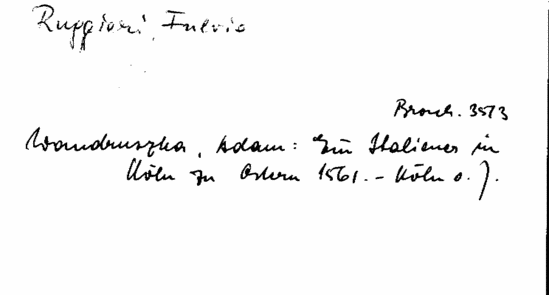 Ruggieri, Fulvio
Brosch. 3573
Wandruszka, Adam: Ein Italiener in
Köln zu Ostern 1561. - Köln o. J.